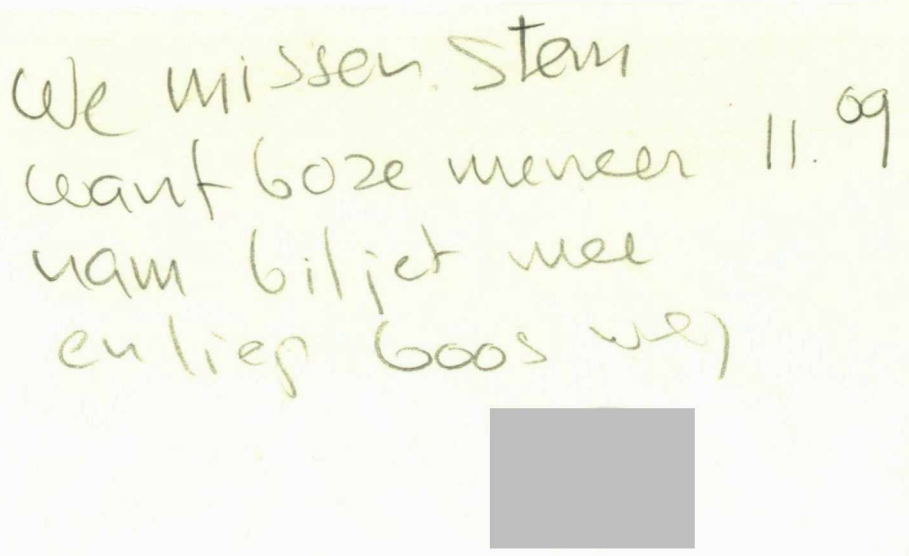 We missen stem
want boze meneer 11.09
nam biljet mee
en liep boos weg